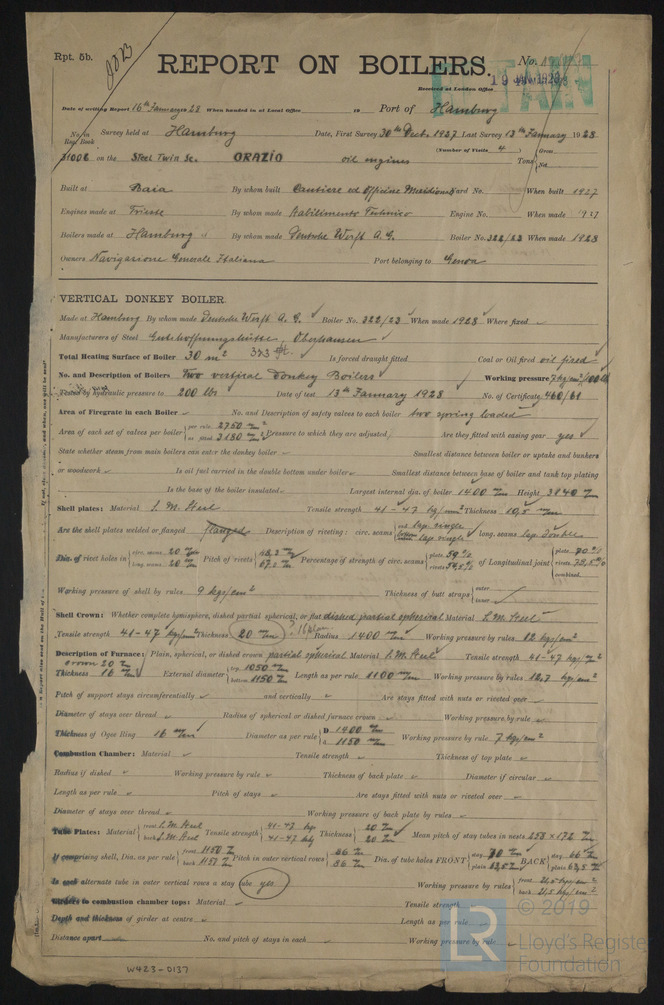 Rpt. 5b.
REPORT ON BOILERS.
No.
Received at London Office
Date of writing Report 16th January 1928 When handed in at Local Office 19 Port of Hamburg
No. in Reg. Book Survey held at Hamburg Date, First Survey 30th Decb. 1927 Last Survey 13th January 1928
(Number of Visits 4)
on the Steel Twin Sc. ORAZIO oil engines Tons Gross Net
Built at Baia By whom built Cantiere ed Officine Yard No. When built 1927
Engines made at Trieste By whom made Stabilimento Tecnico Engine No. When made 1927
Boilers made at Hamburg By whom made Deutsche Werft A.G. Boiler No. 322/23 When made 1928
Owners Navigazione Generale Italiana Port belonging to Genoa
VERTICAL DONKEY BOILER.
Made at Hamburg By whom made Deutsche Werft A.G. Boiler No. 322/23 When made 1928 Where fixed
Manufacturers of Steel Gutehoffnungshütte, Oberhausen
Total Heating Surface of Boiler 30 m² 323 Is forced draught fitted Coal or Oil fired oil fired
No. and Description of Boilers Two vertical Donkey Boilers Working pressure 7 kg/cm²/100 lb
Tested by hydraulic pressure to 200 lbs Date of test 13th January 1928 No. of Certificate 460/61
Area of Firegrate in each Boiler No. and Description of safety valves to each boiler two spring loaded
Area of each set of valves per boiler per rule 2750 m/m² as fitted 3180 m/m² Pressure to which they are adjusted Are they fitted with easing gear yes
State whether steam from main boilers can enter the donkey boiler Smallest distance between boiler or uptake and bunkers
or woodwork Is oil fuel carried in the double bottom under boiler Smallest distance between base of boiler and tank top plating
Is the base of the boiler insulated Largest internal dia. of boiler 1400 m/m Height 3840 m/m
Shell plates: Material S.M. Steel Tensile strength 41-47 kg/mm² Thickness 10,5 m/m
Are the shell plates welded or flanged flanged Description of riveting: circ. seams end lap single lap single long. seams lap double
Dia. of rivet holes in circ. seams 20 m/m long. seams 20 m/m Pitch of rivets Percentage of strength of circ. seams plate 59% rivets of Longitudinal joint plate 70% rivets combined
Working pressure of shell by rules 9 kgs/cm² Thickness of butt straps outer inner
Shell Crown: Whether complete hemisphere, dished partial spherical, or flat dished partial spherical Material S.M. Steel
Tensile strength 41-47 kg/mm² Thickness 20 m/m Radius 1400 m/m Working pressure by rules 12 kgs/cm²
Description of Furnace: Plain, spherical, or dished crown partial spherical Material S.M. Steel Tensile strength 41-47 kg/m/m²
Thickness crown 20 m/m 16 m/m External diameter top 1050 m/m bottom 1150 m/m Length as per rule 1100 m/m Working pressure by rules 12,7 kgs/cm²
Pitch of support stays circumferentially and vertically Are stays fitted with nuts or riveted over
Diameter of stays over thread Radius of spherical or dished furnace crown Working pressure by rule
Thickness of Ogee Ring 16 m/m Diameter as per rule D 1400 m/m d 1150 m/m Working pressure by rule 7 kgs/cm²
Combustion Chamber: Material Tensile strength Thickness of top plate
Radius if dished Working pressure by rule Thickness of back plate Diameter if circular
Length as per rule Pitch of stays Are stays fitted with nuts or riveted over
Diameter of stays over thread Working pressure of back plate by rules
Tube Plates: Material front S.M. Steel back S.M. Steel Tensile strength 41-47 kg 41-47 kg Thickness 20 m/m 20 m/m Mean pitch of stay tubes in nests 258 x 172 m/m
If comprising shell, Dia. as per rule front 1150 m/m back 1157 m/m Pitch in outer vertical rows 86 m/m 86 m/m Dia. of tube holes FRONT stay 70 m/m plain 63,5 m/m BACK stay 66 m/m plain 63,5 m/m
Is each alternate tube in outer vertical rows a stay tube yes Working pressure by rules front 21,5 kgs/cm² back 21,5 kgs/cm²
Girders to combustion chamber tops: Material Tensile strength
Depth and thickness of girder at centre Length as per rule
Distance apart No. and pitch of stays in each Working pressure by rule
W423-0137
© 2019
LR
Lloyd's Register
Foundation